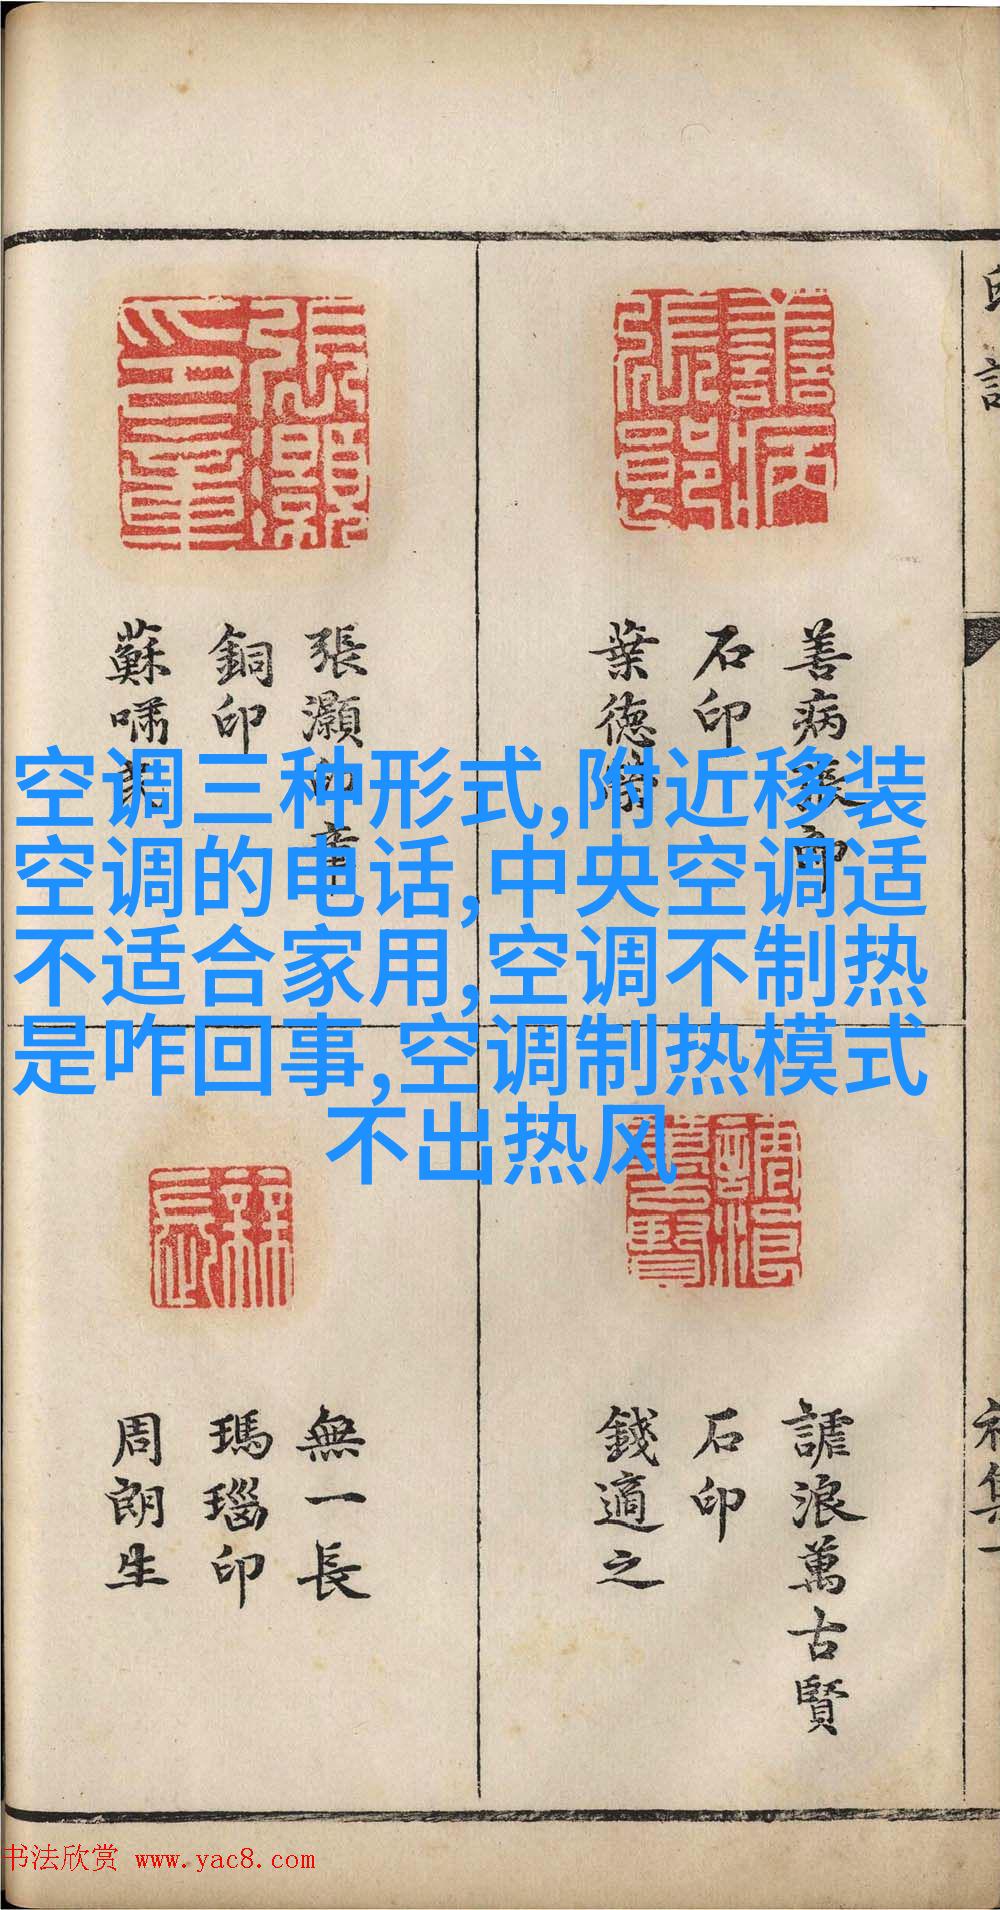 空调三种形式,附近移装
空调的电话,中央空调适
不适合家用,空调不制热
是咋回事,空调制热模式
不出热风
善病
石印
葉德
張灝
銅印
蘇嘯
謔浪萬古賢
石印
錢適之
無一長
瑪瑙印
周朗生
初集一
书法欣赏 www.yac8.com